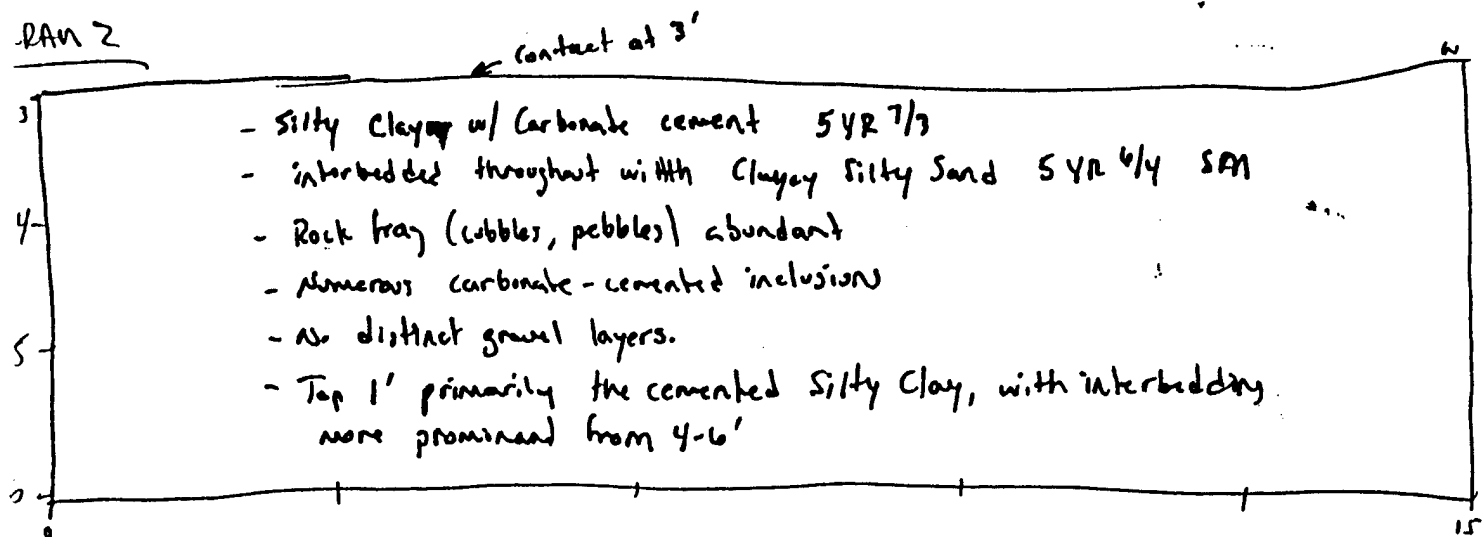 RAM 2
contact at 3'
3
- Silty Clay w/ Carbonate cement 5 YR 7/3
- interbedded throughout with Clayey Silty Sand 5 YR 6/4 SM
4
- Rock frag (cobbles, pebbles) abundant
- Numerous carbonate-cemented inclusions
- No distinct gravel layers.
5
- Top 1' primarily the cemented Silty Clay, with interbedding
more prominand from 4-6'
15